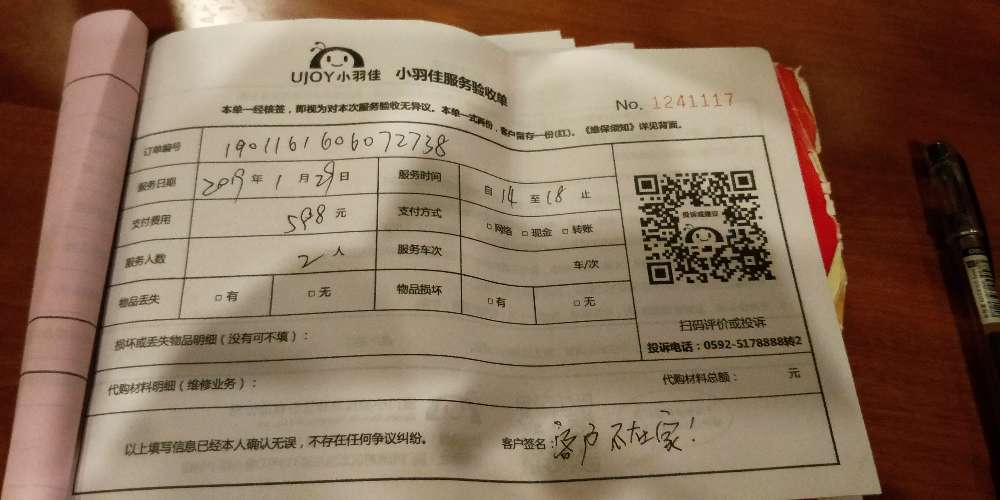 UJOY小羽佳 小羽佳服务验收单
No. 1241117
本单一经核签，即视为对本次服务验收无异议。本单一式两份，客户留存一份(红)。《维保须知》详见背面。
订单编号 190116160607 2738
服务日期 2019 年 1 月 29 日 服务时间 自 14 至 18 止
支付费用 598 元 支付方式 □网络 □现金 □转账
服务人数 2 人 服务车次 车/次
物品丢失 □有 □无 物品损坏 □有 □无
投诉或建议
扫码评价或投诉
投诉电话：0592-5178888转2
损坏或丢失物品明细（没有可不填）：
代购材料明细（维修业务）： 代购材料总额： 元
以上填写信息已经本人确认无误，不存在任何争议纠纷。 客户签名：客户不在家！